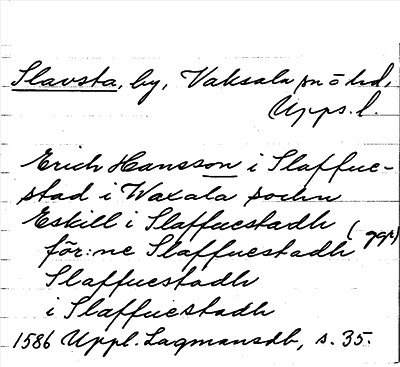 Slavsta, by, Vaksala sn o hd,
Upps. l.
Erich Hansson i Slaffue-
stad i Waxala sochn
Eskill i Slaffuestadh
för:ne Slaffuestadh (ggr)
Slaffuestadh
i Slaffuestadh
1586 Uppl. Lagmansdb, s. 35.